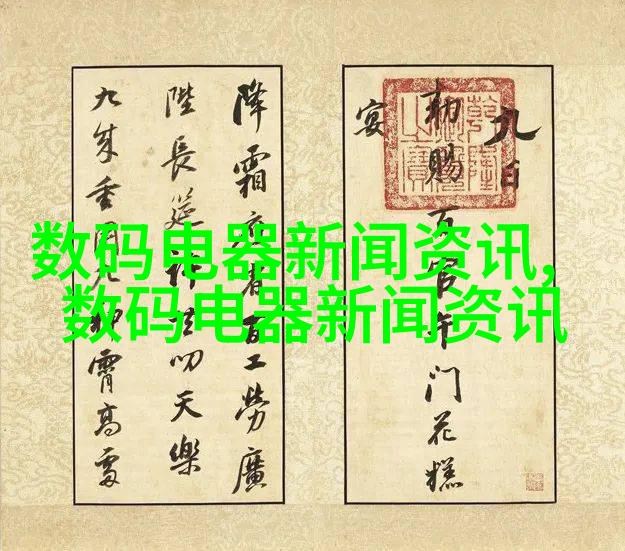 数码电器新闻资讯,
数码电器新闻资讯
九日
勅賜百官午門花糕
宴
降霜百工勞廣
陛長筵叨天樂
九重霄高